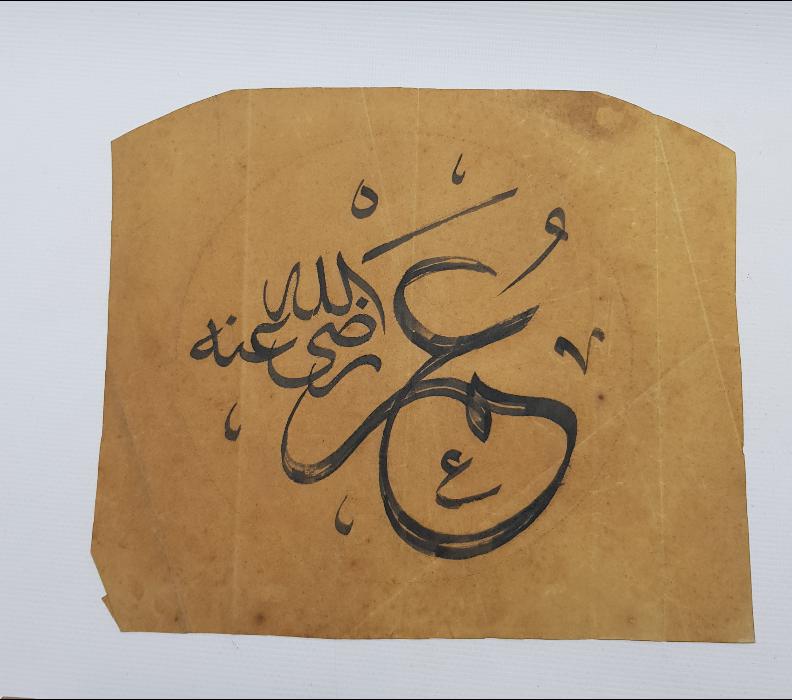 عُمَر
رضي الله عنه